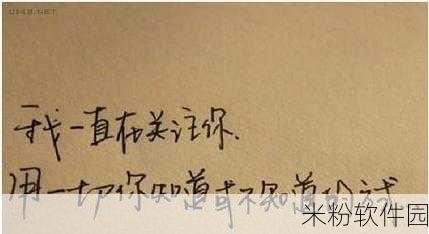 0148.NET
我一直在关注你.
用一切你知道或不知道的方式
米粉软件园